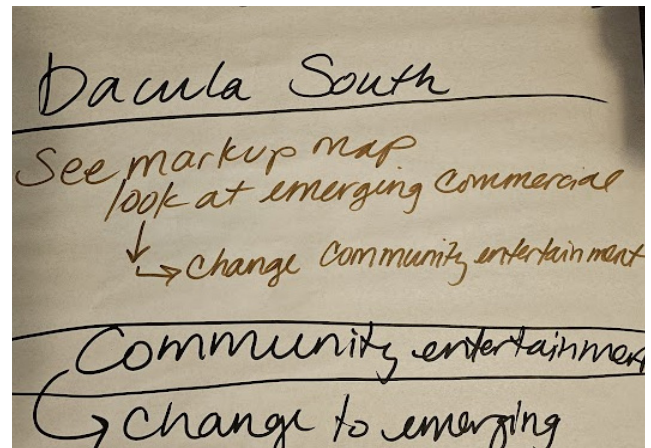 Dacula South
See markup map
look at emerging commercial
↓
↳ Change Community entertainment
Community entertainmen
↳ Change to emerging